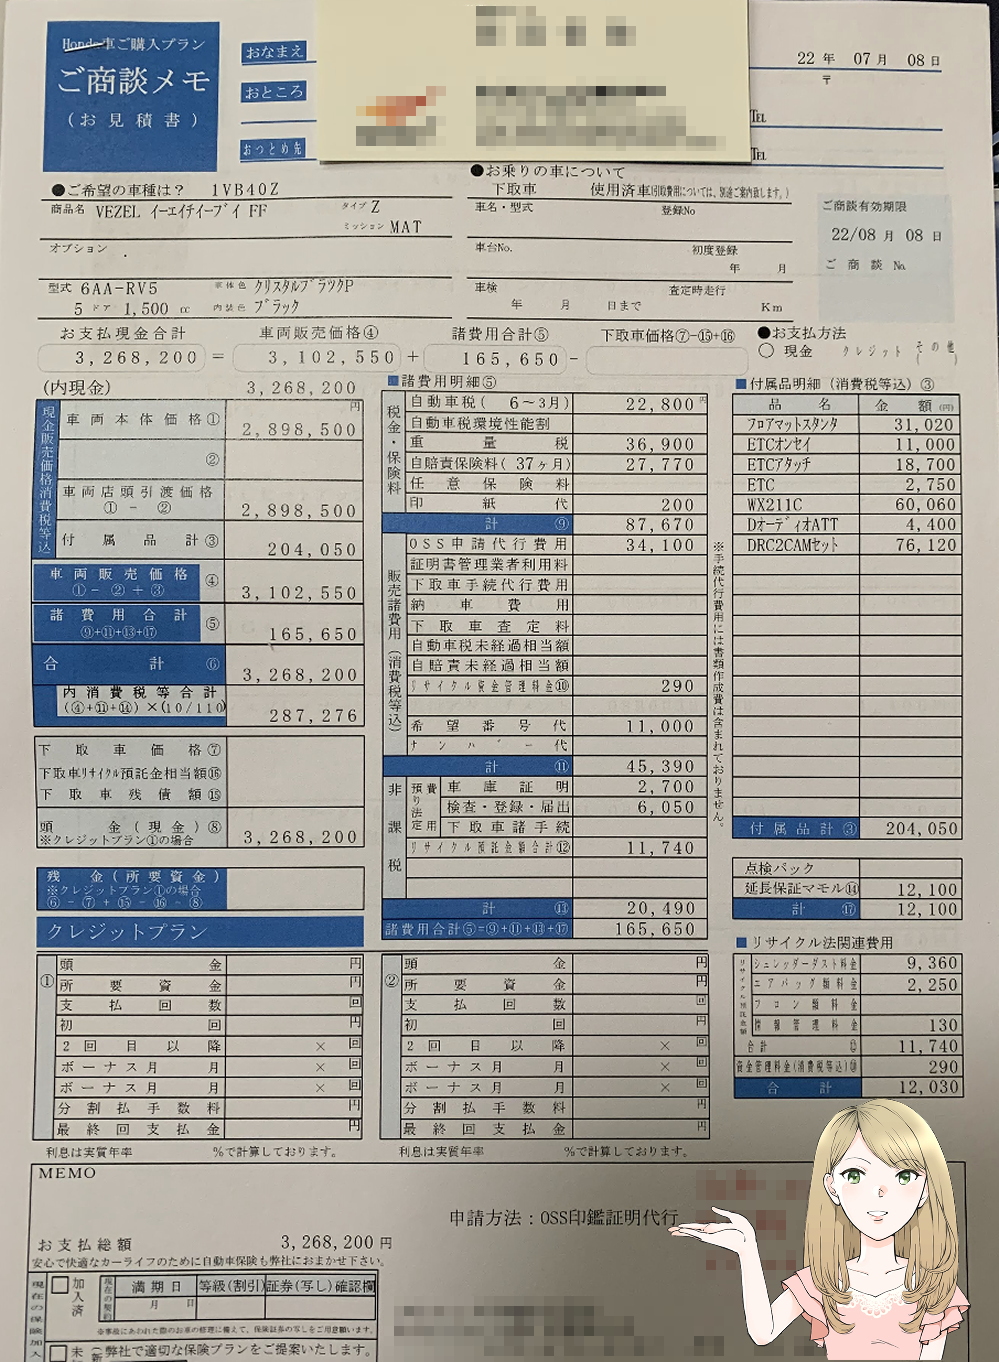 Honda車ご購入プラン
ご商談メモ
(お見積書)
おなまえ
おところ
おつとめ先
22 年 07 月 08 日
〒
TEL
TEL
●ご希望の車種は? 1VB40Z
商品名 VEZEL イーエイチイーブイ FF タイプ Z
ミッション MAT
オプション
型式 6AA-RV5 車体色 クリスタルブラックP
5 ドア 1,500 cc 内装色 ブラック
●お乗りの車について
下取車 使用済車(引取費用については、別途ご案内致します。)
車名・型式 登録No
車台No. 初度登録
年 月
車検 査定時走行
年 月 日まで Km
ご商談有効期限
22/08 月 08 日
ご商談 No.
お支払現金合計 車両販売価格④ 諸費用合計⑤ 下取車価格⑦-⑮+⑯
3,268,200 = 3,102,550 + 165,650 -
●お支払方法
○ 現金 クレジット その他 ( )
(内現金) 3,268,200
現金販売価格消費税等込
円
車両本体価格① 2,898,500
②
車両店頭引渡価格
①-② 2,898,500
付属品計③ 204,050
車両販売価格
①-②+③ ④ 3,102,550
諸費用合計
⑨+⑪+⑬+⑰ ⑤ 165,650
合計 ⑥ 3,268,200
内消費税等合計
(④+⑪+⑭)×(10/110) 287,276
下取車価格⑦
下取車リサイクル預託金相当額⑯
下取車残債額⑮
頭金(現金)⑧
※クレジットプラン①の場合 3,268,200
残金(所要資金)
※クレジットプラン①の場合
⑥-⑦+⑮-⑯-⑧
■諸費用明細⑤
税金・保険料
自動車税(6~3月) 22,800 円
自動車税環境性能割
重量税 36,900
自賠責保険料(37ヶ月) 27,770
任意保険料
印紙代 200
計 ⑨ 87,670
販売諸費用(消費税等込)
OSS申請代行費用 34,100
証明書管理業者利用料
下取車手続代行費用
納車費用
下取車査定料
自動車税未経過相当額
自賠責未経過相当額
リサイクル資金管理料金⑩ 290
希望番号代 11,000
ナンバー代
計 ⑪ 45,390
非課税
預り法定費用
車庫証明 2,700
検査・登録・届出 6,050
下取車諸手続
リサイクル預託金額合計⑫ 11,740
計 ⑬ 20,490
諸費用合計⑤=⑨+⑪+⑬+⑰ 165,650
※手続代行費用には書類作成費は含まれておりません。
■付属品明細(消費税等込)③
品名 金額(円)
フロアマットスタンダ 31,020
ETCオンセイ 11,000
ETCアタッチ 18,700
ETC 2,750
WX211C 60,060
DオーディオATT 4,400
DRC2CAMセット 76,120
付属品計③ 204,050
点検パック
延長保証マモル⑭ 12,100
計 ⑰ 12,100
■リサイクル法関連費用
リサイクル預託金額
シュレッダーダスト料金 9,360
エアバッグ類料金 2,250
フロン類料金
情報管理料金 130
合計 ⑫ 11,740
資金管理料金(消費税等込)⑩ 290
合計 12,030
クレジットプラン
① 頭金 円
所要資金 円
支払回数 回
初回 円
2回目以降 × 回
ボーナス月 月 × 回
ボーナス月 月 × 回
分割払手数料 円
最終回支払金 円
利息は実質年率 %で計算しております。
② 頭金 円
所要資金 円
支払回数 回
初回 円
2回目以降 × 回
ボーナス月 月 × 回
ボーナス月 月 × 回
分割払手数料 円
最終回支払金 円
利息は実質年率 %で計算しております。
MEMO
申請方法:OSS印鑑証明代行
お支払総額 3,268,200 円
安心で快適なカーライフのために自動車保険も弊社におまかせ下さい。
現在の保険加入
□ 加入済
現在の契約
満期日 等級(割引) 証券(写し)確認欄
月 日
※事故にあわれた際のお車の修理に備えて、保険証券の写しをご用意願います。
□ 未
(弊社で適切な保険プランをご提案いたします。